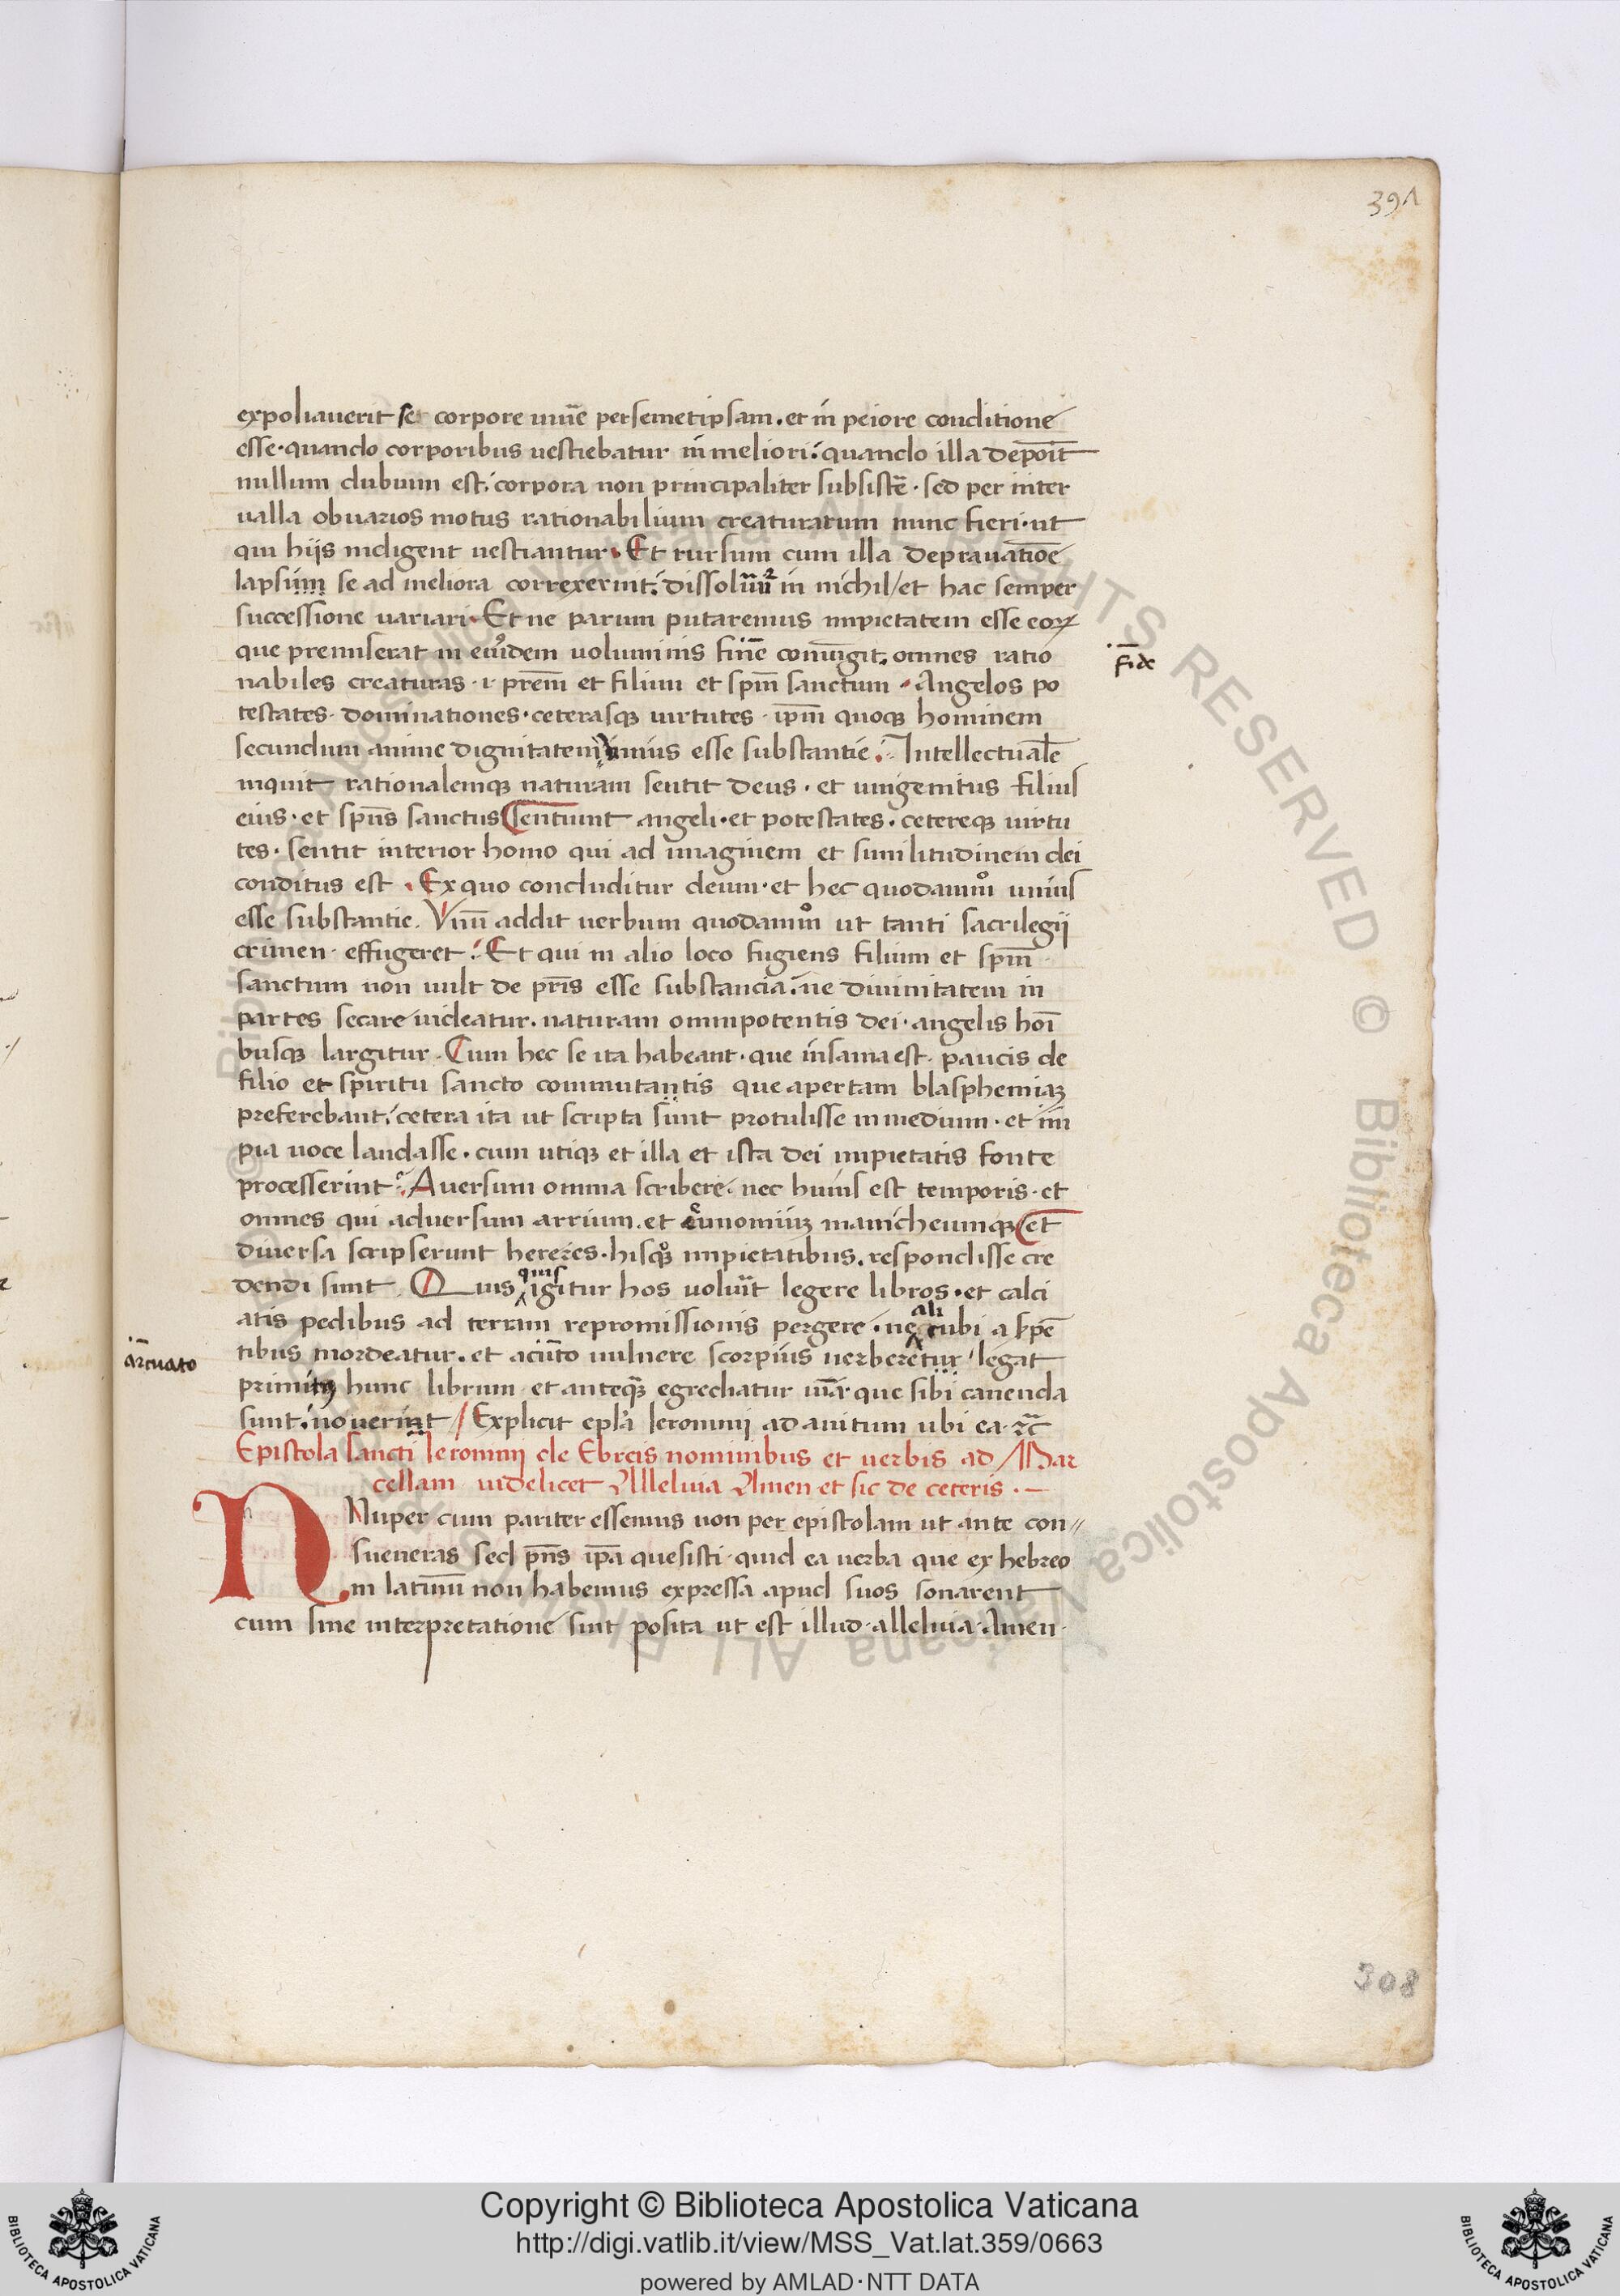 391
expoliauerit se corpore uiuē per semetipsam. et in peiore conditione
esse. quando corporibus uestiebatur in meliori: quando illa depoīt
nullum dubium est: corpora non principaliter subsistē. sed per inter
ualla ob uarios motus rationabilium creaturarum nunc fieri. ut
qui hijs indigent uestiantur. Et rursum cum illa deprauatiōe
lapsum se ad meliora correxerint: dissolui in nichil / et hac semper
successione uariari. Et ne parum putaremus impietatem esse eoꝝ
que premiserat in eiusdem uoluminis fine coniūgit. omnes ratio
fīde
nabiles creaturas .i. prem̄ et filium et spm̄ sanctum. Angelos po
testates. dominationes. ceterasqꝫ uirtutes. ipm̄ quoqꝫ hominem
secundum anime dignitatem unius esse substantie. Intellectualē
inquit rationalemqꝫ naturam sentit deus. et unigenitus filius
eius. et spūs sanctus sentiunt angeli. et potestates. cetereqꝫ uirtu
tes. sentit interior homo qui ad imaginem et similitudinem dei
conditus est. Ex quo concluditur deum. et hec quodammᵒ unius
esse substantie. Vnū addit uerbum quodammᵒ ut tanti sacrilegij
crimen effugeret: Et qui in alio loco fugiens filium et spm̄
sanctum non uult de prīs esse substancia. ne diuinitatem in
partes secare uideatur. naturam omnipotentis dei. angelis hoī
busqꝫ largitur. Cum hec se ita habeant. que insania est. paucis de
filio et spiritu sancto commutantis que apertam blasphemiaꝫ
preferebant: cetera ita ut scripta sunt protulisse in medium. et im
pia uoce laudasse. cum utiqꝫ et illa et ista dei impietatis fonte
processerint. Aversum omnia scribere. nec huius est temporis. et
omnes qui aduersum arrium. et eunomiuꝫ manicheumqꝫ et
diuersa scripserunt hereses. hisqꝫ impietatibus. respondisse cre
dendi sunt. Quis quis igitur hos voluīt legere libros. et calci
atis pedibus ad terram repromissionis pergere. ne alicubi a s̄pē
tibus mordeatur. et acūto uulnere scorpius uerberetur. legat
arcuato
primitꝰ hunc librum et anteqꝫ egrediatur uiā. que sibi cauenda
sunt. nouerint / Explicit epl̄a Ieronimij ad auitum ubi ea. ⁊c̄
Epistola sancti Ieronimj de Ebreis nominibus et uerbis ad Mar
cellam uidelicet Alleluia Amen et sic de ceteris. –
Nuper cum pariter essemus non per epistolam ut ante con
sueueras sed pn̄s ipā quesisti quid ea uerba que ex hebreo
in latinū non habemus expressa apud suos sonarent
cum sine interpretatione sint posita ut est illud. alleluia. Amen.
308
© Biblioteca Apostolica Vaticana ALL RIGHTS RESERVED
© Biblioteca Apostolica Vaticana ALL RIGHTS RESERVED
Copyright © Biblioteca Apostolica Vaticana
http://digi.vatlib.it/view/MSS_Vat.lat.359/0663
powered by AMLAD·NTT DATA
BIBLIOTECA APOSTOLICA VATICANA
BIBLIOTECA APOSTOLICA VATICANA